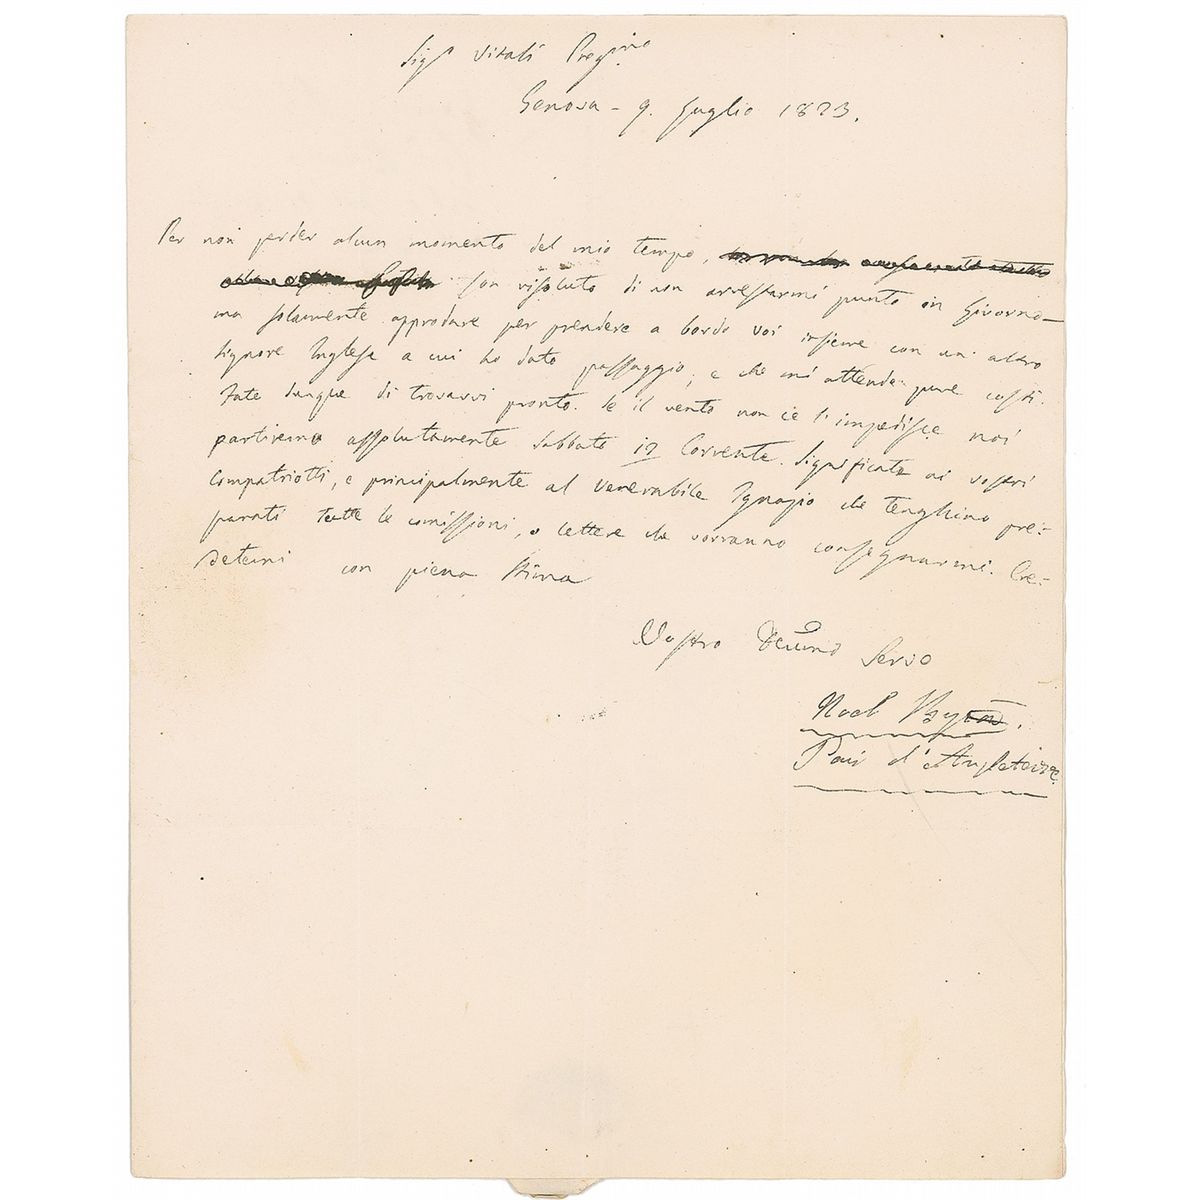 Sigr Vitali Pregmo
Genova - 9. Luglio 1823.
Per non perder alcun momento del mio tempo,
son risoluto di non arrestarmi punto in Livorno -
ma solamente approdare per prendere a bordo voi insieme con un' altro
Signore Inglese a cui ho dato passaggio, e che mi attende pure costì.
Fate dunque di trovarvi pronto. Se il vento non ce l'impedisce noi
partiremo assolutamente Sabbato 12 Corrente. Significate ai vostri
Compatriotti, e principalmente al Venerabile Ignazio che tenghino pre=
parati tutte le comissioni, o lettere che vorranno consegnarmi. Cre=
detemi con piena Stima
Vostro Devmo Servo
Noel Byron.
Pair d'Angleterre